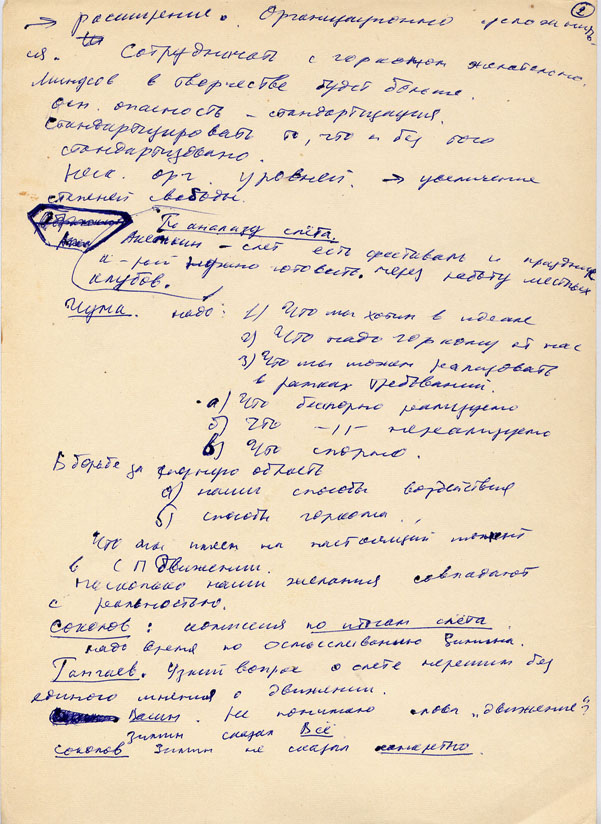 2
→ расширение. Организационно
ся. Сотрудничать с горкомом желательно.
Минусов в творчестве будет больше.
осн. опасность – стандартизация.
Стандартизировать то, что и без того
стандартизовано.
Неск. орг. уровней. → увеличение
степеней свободы.
По анализу слёта.
– слёт есть фестиваль и праздник
к-рый нужно готовить через работу местных
клубов.
Чума. надо: 1) Что мы хотим в идеале
2) Что надо горкому от нас
3) Что мы можем реализовать
в рамках требований.
а) Что бесспорно реализуемо
б) Что –〃– нереализуемо
в) Что спорно.
В борьбе за область
а) наши способы воздействия
б) способы горкома.
Что мы имеем на настоящий момент
в СП движении.
Насколько наши желания совпадают
с реальностью.
Соколов: комиссия по итогам слёта
надо время по осмысливанию Зимина.
Узкий вопрос о слёте не решим без
единого мнения о движении.
Не понимаю слова „движение"?
Зимин сказал Всё.
Соколов Зимин не сказал конкретно.